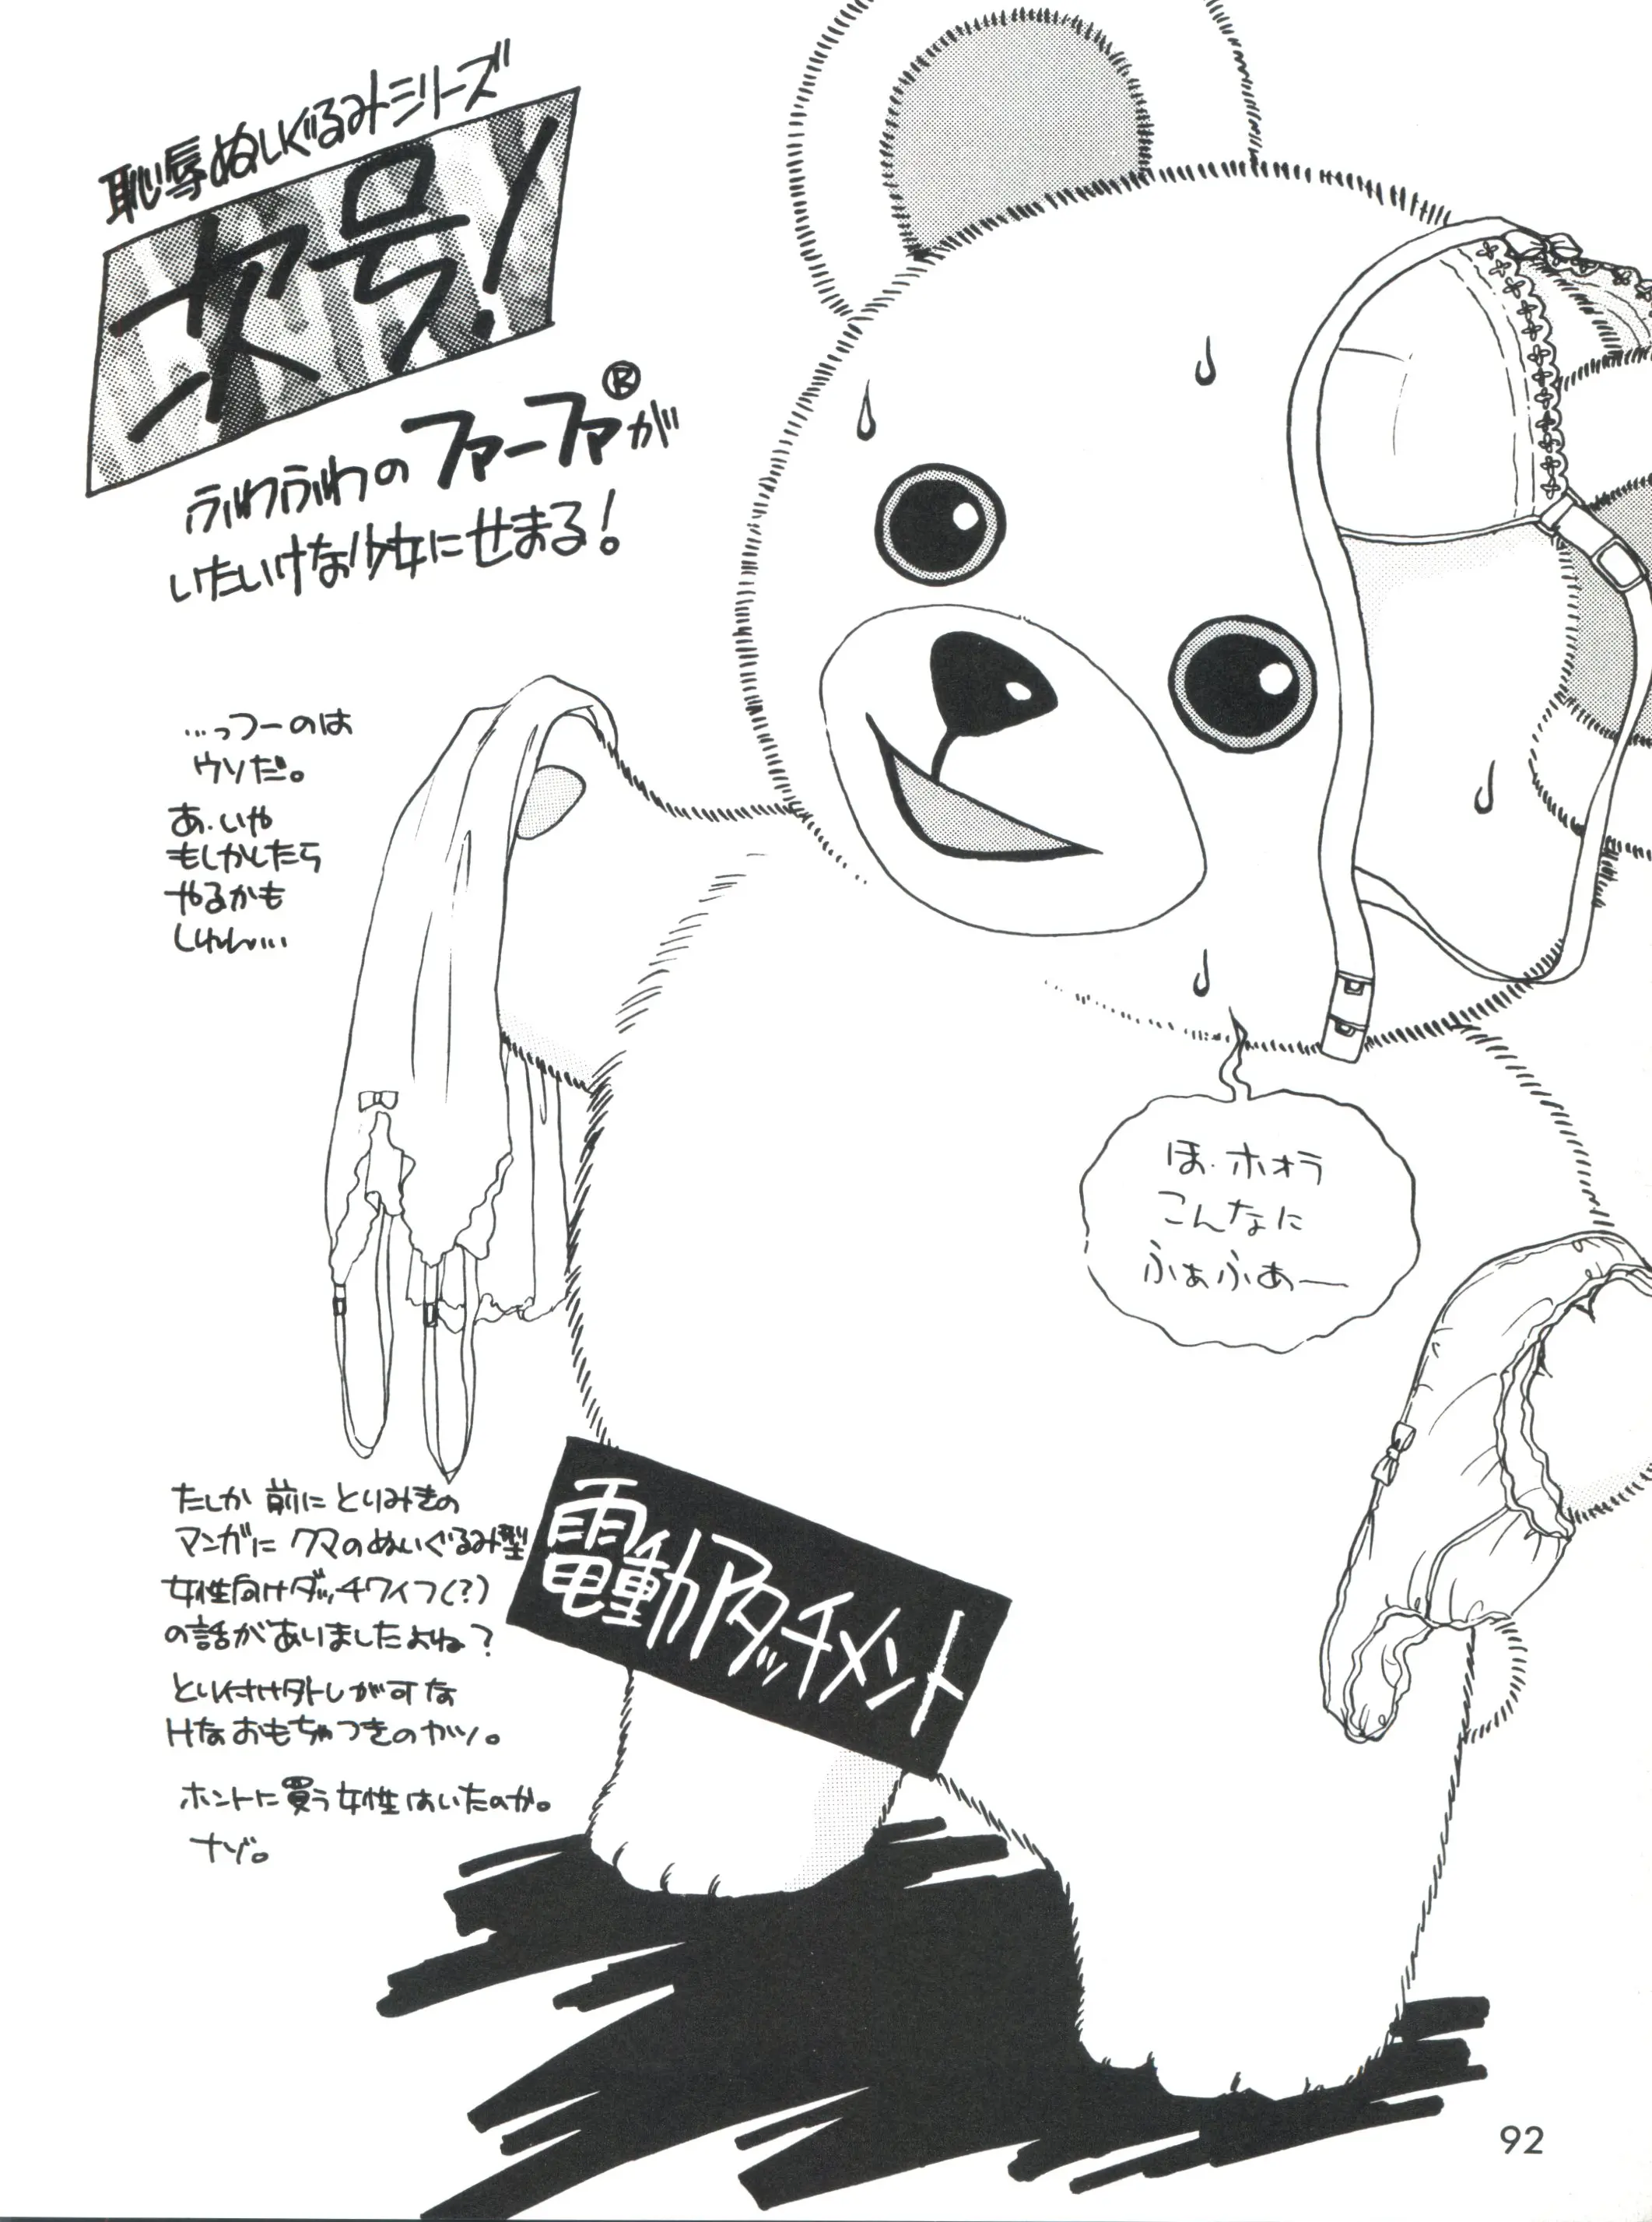 恥辱ぬいぐるみシリーズ
次号！
ふわふわのファーファ®が
いたいけな少女にせまる！
…っつーのは
ウソだ。
あ.いや
もしかしたら
やるかも
しれん…
ほ.ホォラ
こんなに
ふぁふぁー
たしか前にとりみきの
マンガにクマのぬいぐるみ型
女性向けダッチワイフ(?)
の話がありましたよね？
とり付けはずしが可な
Hなおもちゃつきのヤツ。
ホントに買う女性はいたのか。
ナゾ。
電動アタッチメント
92